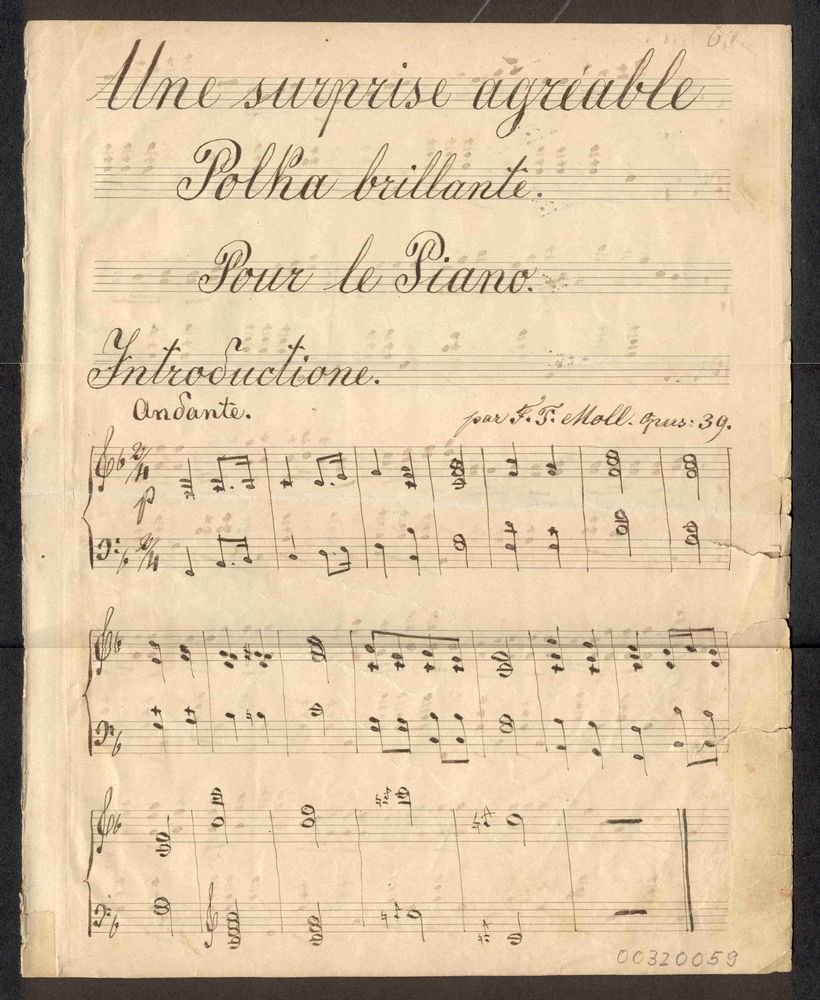 Une surprise agréable
Polka brillante.
Pour le Piano.
Introductione.
Andante.
par F. T. Moll. Opus: 39.
2/4
p
2/4
00320059